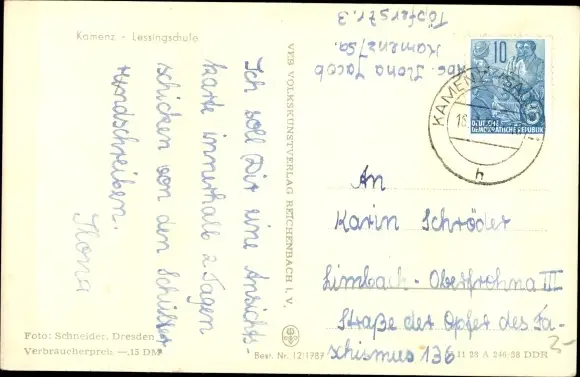 Kamenz - Lessingschule
Ich soll Dir eine Ansichts-
karte innerhalb 2 Tagen
schicken von den Schüller
rundschreiben.
Ilona
Foto: Schneider, Dresden
Verbraucherpreis —,15 DM
VEB VOLKSKUNSTVERLAG REICHENBACH I. V.
Best. Nr. 12/1787
Abs. Ilona Jacob
Kamenz/Sa.
Töpferstr. 3
10
DEUTSCHE
DEMOKRATISCHE REPUBLIK
KAMENZ
18.
h
An
Karin Schröder
Limbach - Oberfrohna III
Straße der Opfer des Fa-
schismus 136
3-
A 246/58 DDR